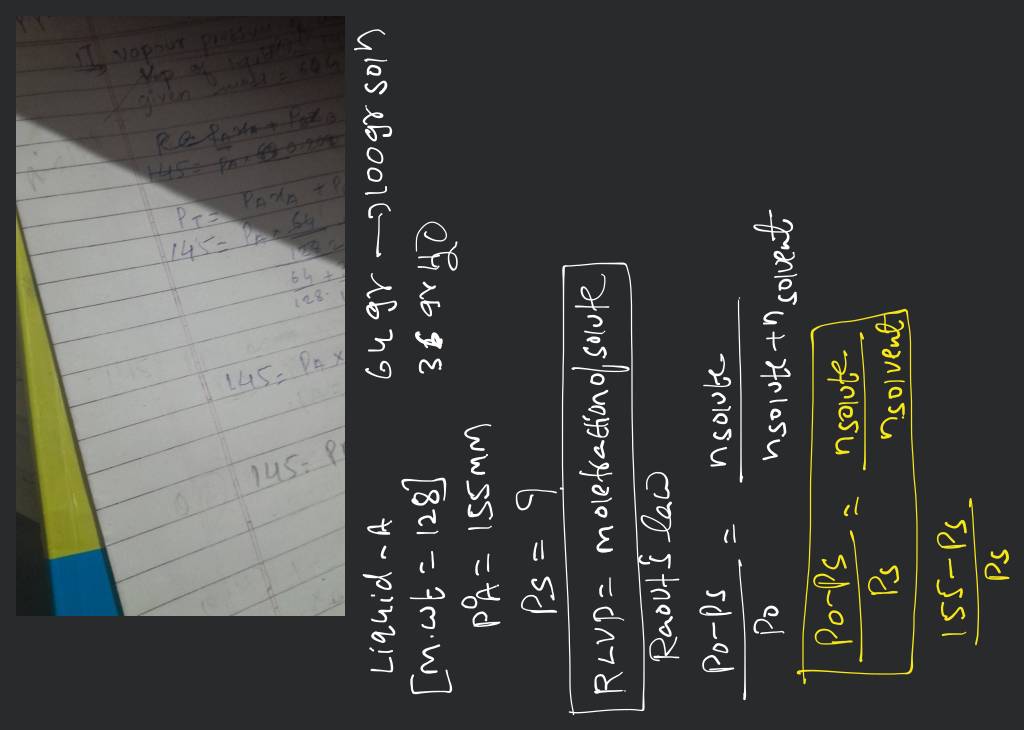 II vapour
Vap of
given
145 = PA
PT = PAxA + P
145 = PA . 64
128
64 +
128
145 = PA x
145 = P
Liquid - A 64 gr → 100 gr soln
[M.wt = 128] 36 gr H2O
P°A = 155 mm
Ps = ?
RLVP = molefraction of solute
Raoult's law
Po-Ps / Po = nsolute / nsolute + nsolvent
Po-Ps / Ps = nsolute / nsolvent
155-Ps / Ps